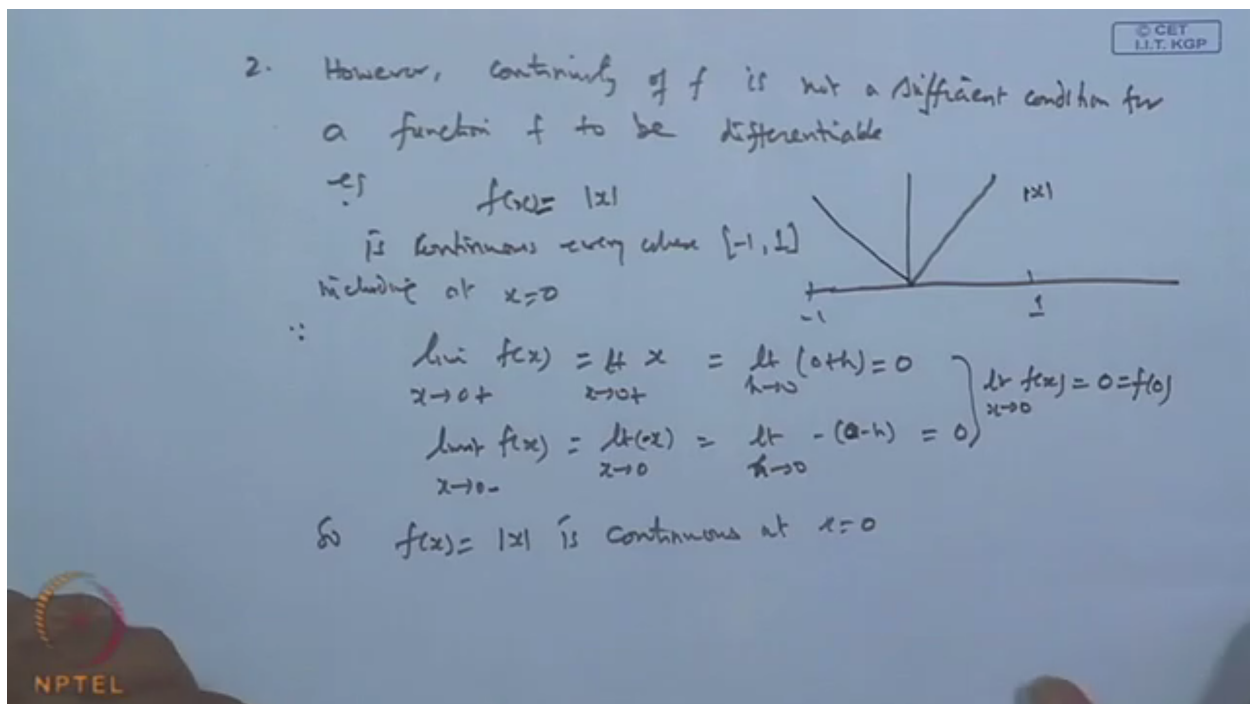 © CET
I.I.T. KGP
2. However, continuity of f is not a sufficient condition for
a function f to be differentiable
eg f(x)= |x|
is continuous every where [-1, 1]
including at x=0
|x|
-1 1
∵ lim f(x) = lt x = lt (0+h) = 0
x→0+ x→0+ h→0
limit f(x) = lt(-x) = lt -(0-h) = 0
x→0- x→0 h→0
lt f(x) = 0 = f(0)
x→0
So f(x)= |x| is continuous at x=0
NPTEL